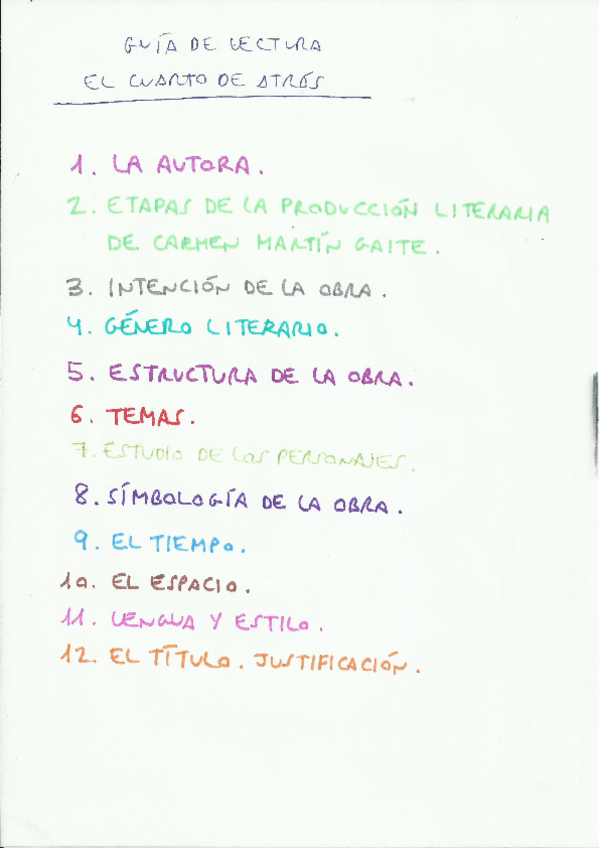 GUÍA DE LECTURA
EL CUARTO DE ATRÁS
1. LA AUTORA.
2. ETAPAS DE LA PRODUCCIÓN LITERARIA
DE CARMEN MARTÍN GAITE.
3. INTENCIÓN DE LA OBRA.
4. GÉNERO LITERARIO.
5. ESTRUCTURA DE LA OBRA.
6. TEMAS.
7. ESTUDIO DE LOS PERSONAJES.
8. SÍMBOLOGÍA DE LA OBRA.
9. EL TIEMPO.
10. EL ESPACIO.
11. LENGUA Y ESTILO.
12. EL TÍTULO. JUSTIFICACIÓN.